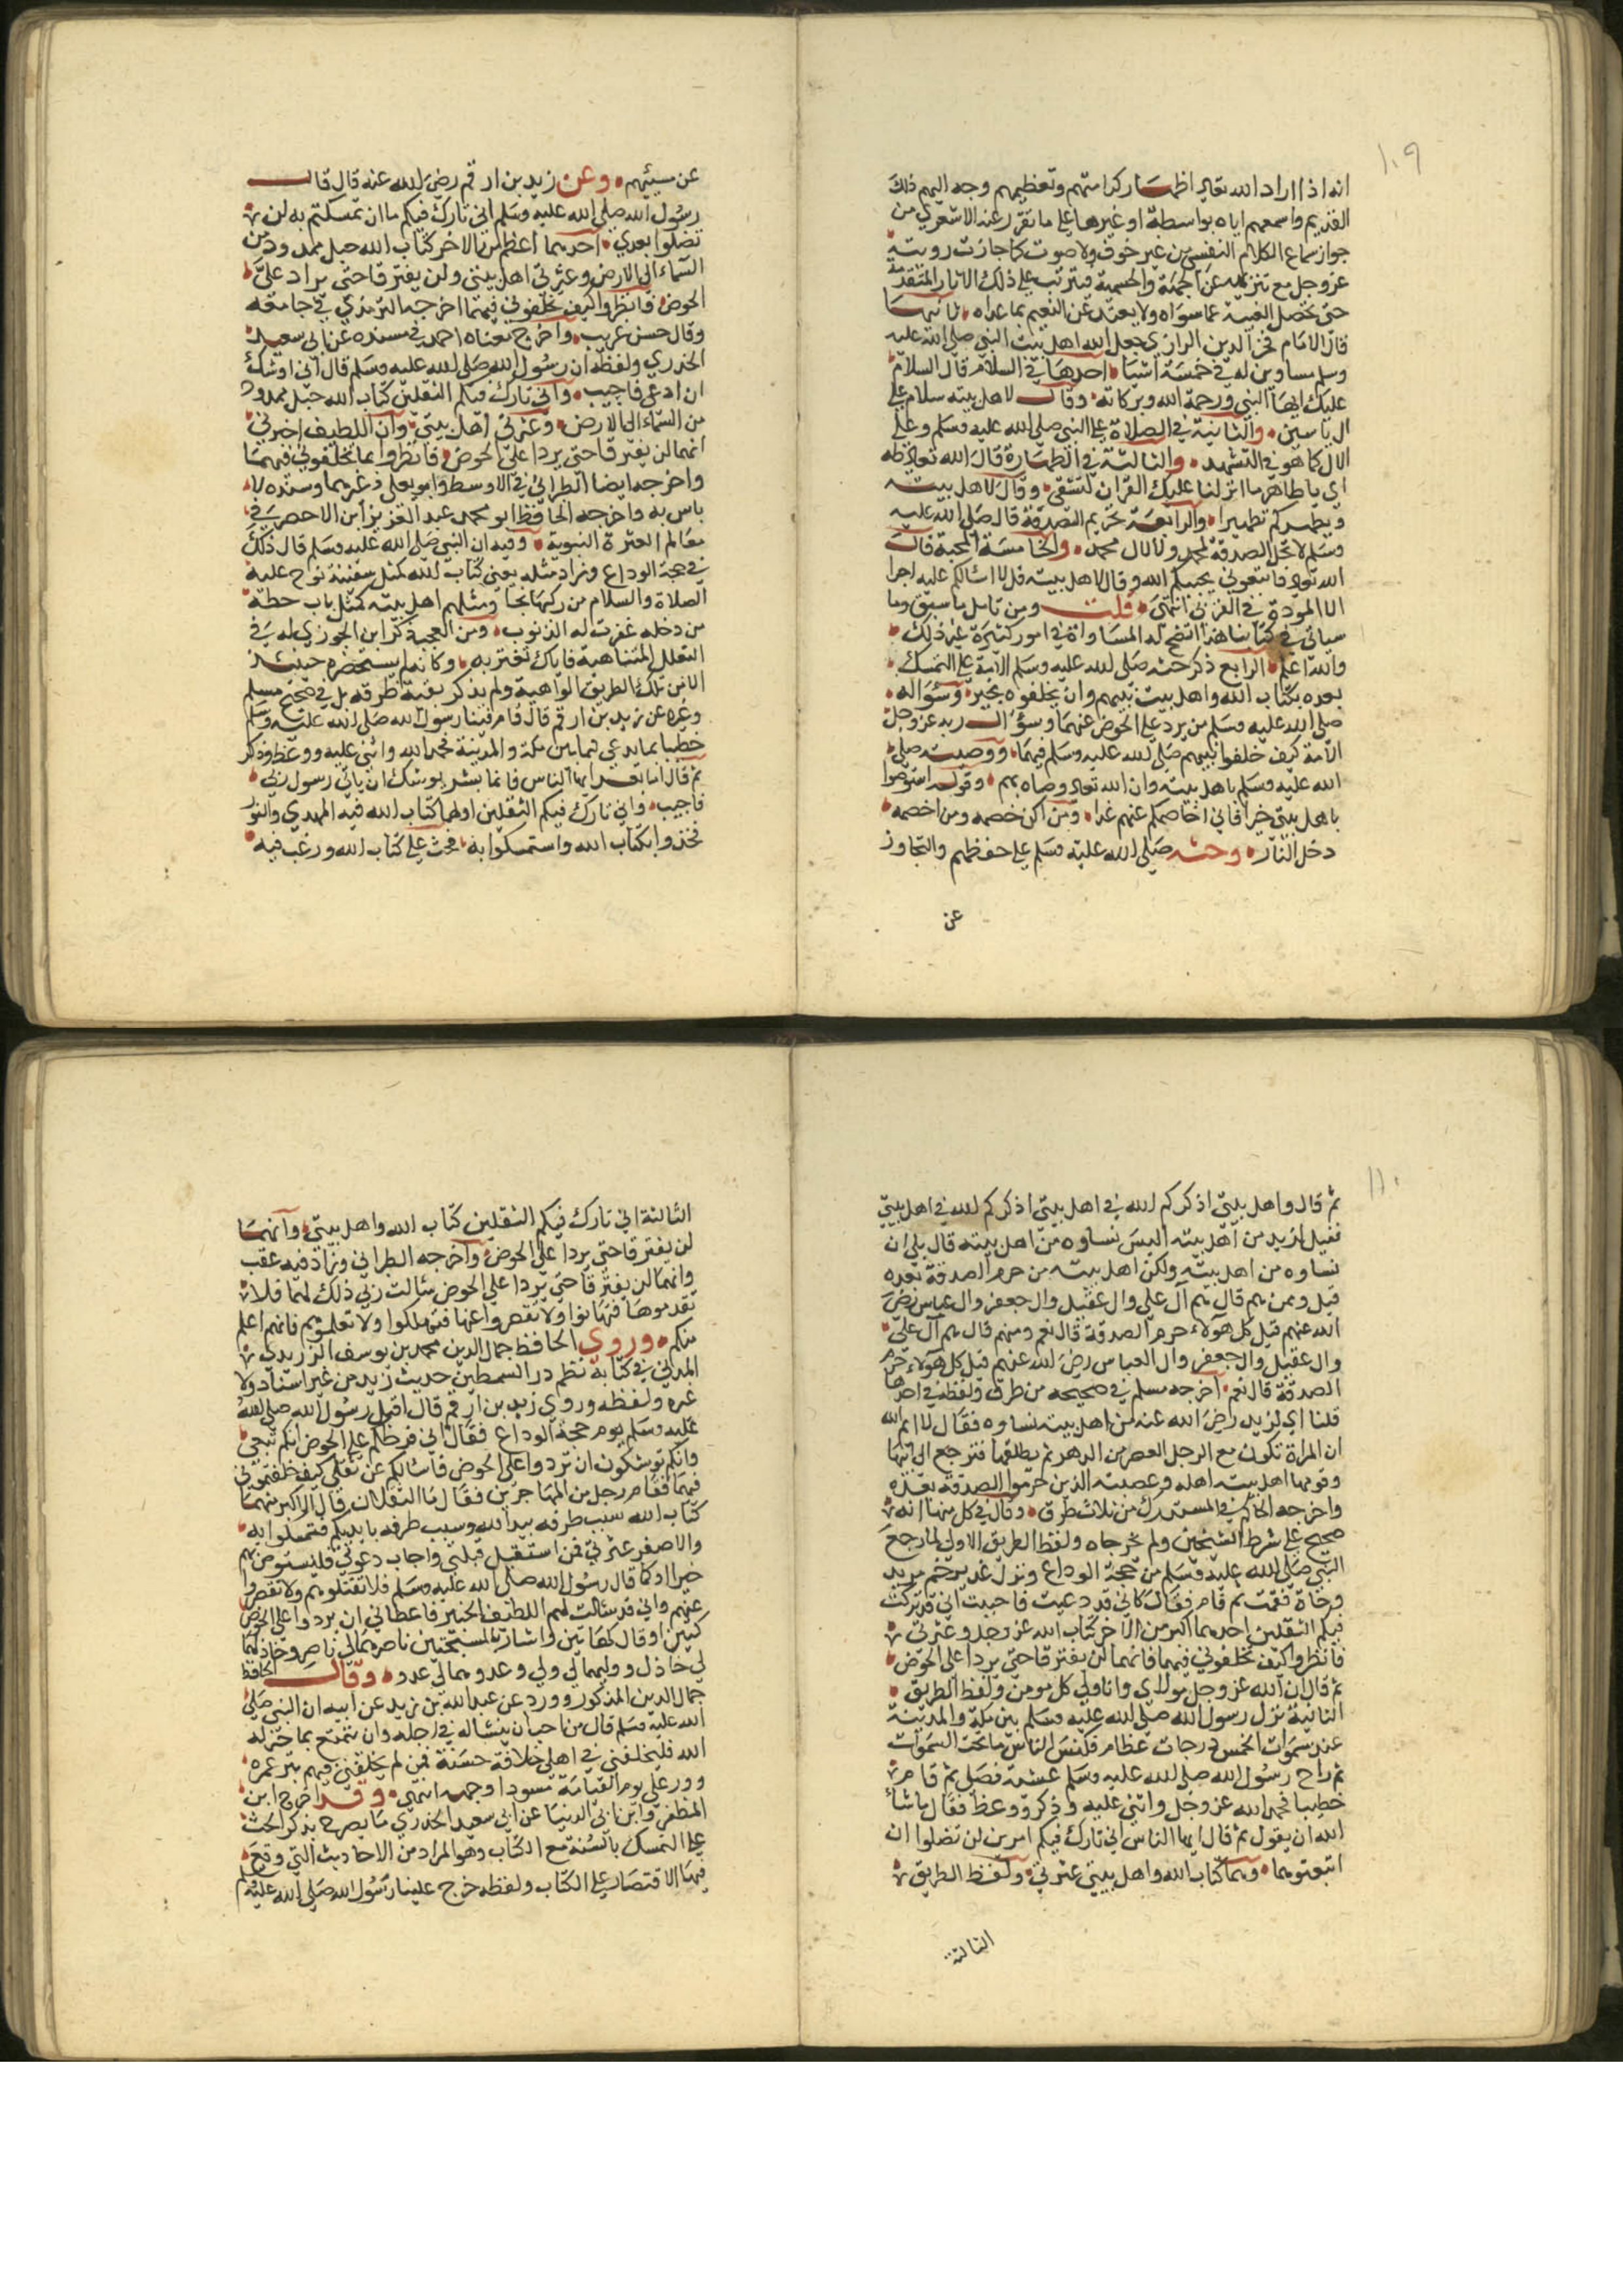 ١٠٩
انه اذا اراد الله تعالى اظهار كرامتهم وتعظيمهم وجه اليهم ذلك
القديم واسمعهم اياه بواسطة او غيرها على ما تقرر عند الاشعري من
جواز سماع الكلام النفسي من غير حرف ولا صوت كما جازت رويته
عز وجل مع تنزيهه عن الجهة والجسمية فيترتب على ذلك الاثار المتقدمة
حتى تحصل الغيبة عما سواه ولا يعتد عن النعيم بما عداه ثانيها
قال الامام فخر الدين الرازي جعل الله اهل بيت النبي صلى الله عليه
وسلم مساوين له في خمسة اشيا احدها في السلام قال السلام
عليك ايها النبي ورحمة الله وبركاته وقال لاهل بيته سلام على
ال ياسين والثانية في الصلاة على النبي صلى الله عليه وسلم وعلى
الال كما هو في التشهد والثالثة في الطهارة قال الله تعالى طه
اي يا طاهر ما انزلنا عليك القران لتشقى وقال لاهل بيته
ويطهركم تطهيرا والرابعة تحريم الصدقة قال صلى الله عليه
وسلم لا تحل الصدقة لمحمد ولا لال محمد والخامسة المحبة قال
الله تعالى فاتبعوني يحببكم الله وقال لاهل بيته قل لا اسالكم عليه اجرا
الا المودة في القربى انتهى قلت ومن تامل ما سبق وما
سياتي في كتابنا هذا اتضح له المساواة في امور كثيرة غير ذلك
والله اعلم الرابع ذكر حثه صلى الله عليه وسلم الامة على التمسك
بعده بكتاب الله واهل بيت نبيهم وان يخلفوه بخير وسؤاله
صلى الله عليه وسلم من يرد على الحوض عنهما وسؤال ربه عز وجل
الامة كيف خلفوا نبيهم صلى الله عليه وسلم فيهما ووصيته صلى
الله عليه وسلم باهل بيته وان الله تعالى وصاه بهم وقوله استوصوا
باهل بيتي خيرا فاني اخاصمكم عنهم غدا ومن اكن خصمه ومن اخصمه
دخل النار وحثه صلى الله عليه وسلم على حفظهم والتجاوز
عن
عن مسيئهم وعن زيد بن ارقم رضي الله عنه قال قال
رسول الله صلى الله عليه وسلم اني تارك فيكم ما ان تمسكتم به لن
تضلوا بعدي احدهما اعظم من الاخر كتاب الله حبل ممدود من
السماء الى الارض وعترتي اهل بيتي ولن يفترقا حتى يردا علي
الحوض فانظروا كيف تخلفوني فيهما اخرجه الترمذي في جامعه
وقال حسن غريب واخرج معناه احمد في مسنده عن ابي سعيد
الخدري ولفظه ان رسول الله صلى الله عليه وسلم قال اني اوشك
ان ادعى فاجيب واني تارك فيكم الثقلين كتاب الله حبل ممدود
من السماء الى الارض وعترتي اهل بيتي وان اللطيف اخبرني
انهما لن يفترقا حتى يردا على الحوض فانظروا بما تخلفوني فيهما
واخرجه ايضا الطبراني في الاوسط وابو يعلى وغيرهما وسنده لا
باس به واخرجه الحافظ ابو محمد عبد العزيز ابن الاخضر في
معالم العترة النبوية وفيه ان النبي صلى الله عليه وسلم قال ذلك
في حجة الوداع وزاد مثله يعني كتاب الله كمثل سفينة نوح عليه
الصلاة والسلام من ركبها نجا ومثلهم اهل بيته كمثل باب حطة
من دخله غفرت له الذنوب ومن العجب ذكر ابن الجوزي له في
العلل المتناهية فاياك تغتر به وكانه لم يستحضره حينئذ
الا من تلك الطريق الواهية ولم يذكر بقية طرقه بل في صحيح مسلم
وغيره عن زيد بن ارقم قال قام فينا رسول الله صلى الله عليه وسلم
خطيبا بما يدعى خما بين مكة والمدينة فحمد الله واثنى عليه ووعظ وذكر
ثم قال اما بعد ايها الناس فانما بشر يوشك ان ياتي رسول ربي
فاجيب واني تارك فيكم الثقلين اولهما كتاب الله فيه الهدي والنور
فخذوا بكتاب الله واستمسكوا به فحث على كتاب الله ورغب فيه
١١٠
ثم قال واهل بيتي اذكركم الله في اهل بيتي اذكركم الله في اهل بيتي
فقيل لزيد من اهل بيته اليس نساوه من اهل بيته قال بلى ان
نساوه من اهل بيته ولكن اهل بيته من حرم الصدقة بعده
قيل ومن هم قال هم آل علي وال عقيل وال جعفر وال عباس رضي
الله عنهم قيل كل هولاء حرم الصدقة قال نعم ومنهم قال هم آل علي
وال عقيل وال جعفر وال العباس رضي الله عنهم قيل كل هولاء حرم
الصدقة قال نعم اخرجه مسلم في صحيحه من طرق ولفظه في احدها
قلنا اي لزيد رضي الله عنه من اهل بيته نساوه فقال لا ايم الله
ان المراة تكون مع الرجل العصر من الدهر ثم يطلقها فترجع الى ابيها
وقومها اهل بيته اهله وعصبته الذين حرموا الصدقة بعده
واخرجه الحاكم في المستدرك من ثلاث طرق وقال في كل منها انه
صحيح على شرط الشيخين ولم يخرجاه ولفظ الطريق الاولى لما رجع
النبي صلى الله عليه وسلم من حجة الوداع ونزل غدير خم امر بد
وحاة فقمت ثم قام فقال كاني قد دعيت فاجبت اني قد تركت
فيكم الثقلين احدهما اكبر من الاخر كتاب الله عز وجل وعترتي
فانظروا كيف تخلفوني فيهما فانهما لن يفترقا حتى يردا على الحوض
ثم قال ان الله عز وجل مولاي وانا ولي كل مومن ولفظ الطريق
الثانية نزل رسول الله صلى الله عليه وسلم بين مكة والمدينة
عند سمرات الخمس درجات عظام فكنس الناس ما تحت السمرات
ثم راح رسول الله صلى الله عليه وسلم عشية فصلى ثم قام
خطيبا فحمد الله عز وجل واثنى عليه وذكر ووعظ فقال ما شاء
الله ان يقول ثم قال ايها الناس اني تارك فيكم امرين لن تضلوا ان
اتبعتوهما وهما كتاب الله واهل بيتي عترتي ولفظ الطريق
الثالثة
الثالثة اني تارك فيكم الثقلين كتاب الله واهل بيتي وانهما
لن يفترقا حتى يردا على الحوض واخرجه الطبراني وزاد فيه عقب
وانهما لن يفترقا حتى يردا على الحوض سالت ربي ذلك لهما فلا
تقدموهما فتهلكوا ولا تقصروا عنهما فتهلكوا ولا تعلموهم فانهم اعلم
منكم وروي الحافظ جمال الدين محمد بن يوسف الزرندي
المدني في كتابه نظم درر السمطين حديث زيد من غير اسناد ولا
غيره ولفظه وروي زيد بن ارقم قال اقبل رسول الله صلى الله
عليه وسلم يوم حجة الوداع فقال اني فرطكم على الحوض انكم تبعي
وانكم توشكون ان تردوا على الحوض فاسالكم عن ثقلي كيف خلفتموني
فيهما فقام رجل من المهاجرين فقال ما الثقلان قال الاكبر منهما
كتاب الله سبب طرفه بيد الله وسبب طرفه بايديكم فتمسكوا به
والاصغر عترتي فمن استقبل قبلتي واجاب دعوتي فليستوص بهم
خيرا او كما قال رسول الله صلى الله عليه وسلم فلا تقتلوهم ولا تقصروا
عنهم واني قد سالت لهم اللطيف الخبير فاعطاني ان يردوا على الحوض
كتين او قال كهاتين واشار بالمسبحتين ناصرهما لي ناصر وخاذلهما
لي خاذل ووليهما لي ولي وعدوهما لي عدو وقال الحافظ
جمال الدين المذكور وورد عن عبد الله بن زيد عن ابيه ان النبي صلى
الله عليه وسلم قال من احب ان ينسا له في اجله وان يتمتع بما خوله
الله فليخلفني في اهلي خلافة حسنة فمن لم يخلفني فيهم بتر عمره
وورد علي يوم القيامة مسودا وجهه انتهى وقد اخرج ابن
المظفر وابن ابي الدنيا عن ابي سعيد الخدري ما يصرح بذكر الحث
على التمسك بالسنة مع الكتاب وهو المراد من الاحاديث التي وقع
فيها الاقتصار على الكتاب ولفظه خرج علينا رسول الله صلى الله عليه وسلم